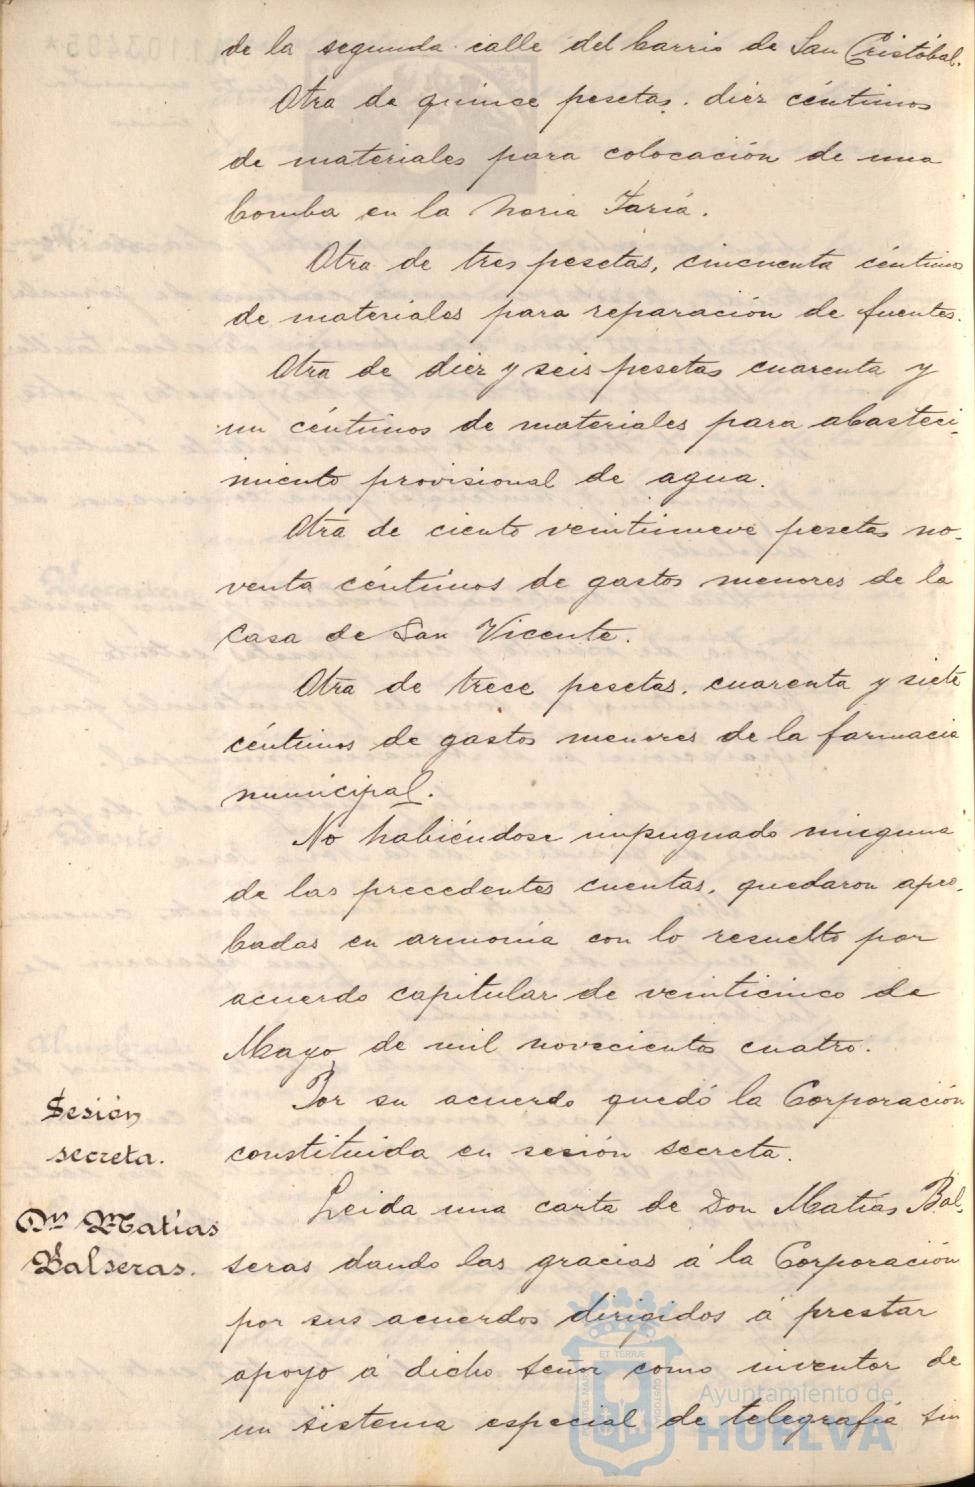 de la segunda calle del barrio de San Cristóbal.
Otra de quince pesetas. diez céntimos
de materiales para colocación de una
bomba en la noria Faría.
Otra de tres pesetas, cincuenta céntimos
de materiales para reparación de fuentes.
Otra de diez y seis pesetas cuarenta y
un céntimos de materiales para abasteci-
miento provisional de agua.
Otra de ciento veintinueve pesetas no-
venta céntimos de gastos menores de la
Casa de San Vicente.
Otra de trece pesetas. cuarenta y siete
céntimos de gastos menores de la farmacia
municipal.
No habiéndose impugnado ninguna
de las precedentes cuentas, quedaron apro-
badas en armonía con lo resuelto por
acuerdo capitular de veinticinco de
Mayo de mil novecientos cuatro.
Sesión
secreta.
Por su acuerdo quedó la Corporación
constituida en sesión secreta.
Dn Matías
Balseras.
Leida una carta de Don Matías Bal-
seras dando las gracias á la Corporación
por sus acuerdos dirigidos á prestar
apoyo á dicho Señor como inventor de
un sistema especial de telegrafía sin
Ayuntamiento de
HUELVA
ET TERRÆ